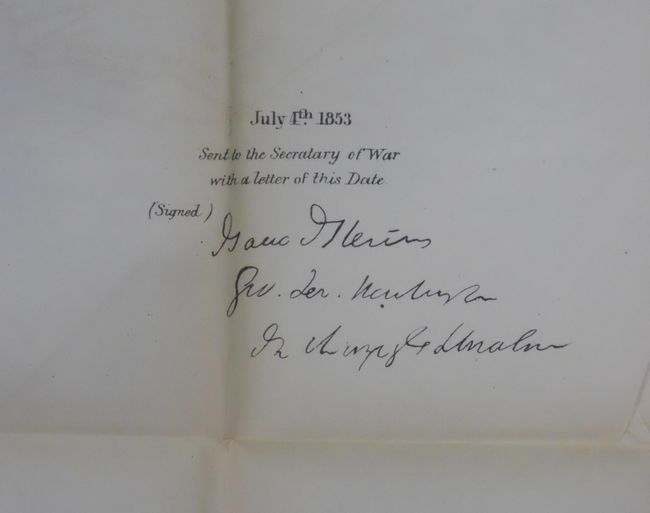 July 4th. 1853
Sent to the Secratary of War
with a letter of this Date
(Signed) Isaac I Stevens
Gov. Ter. Washington
In charge of Exploration